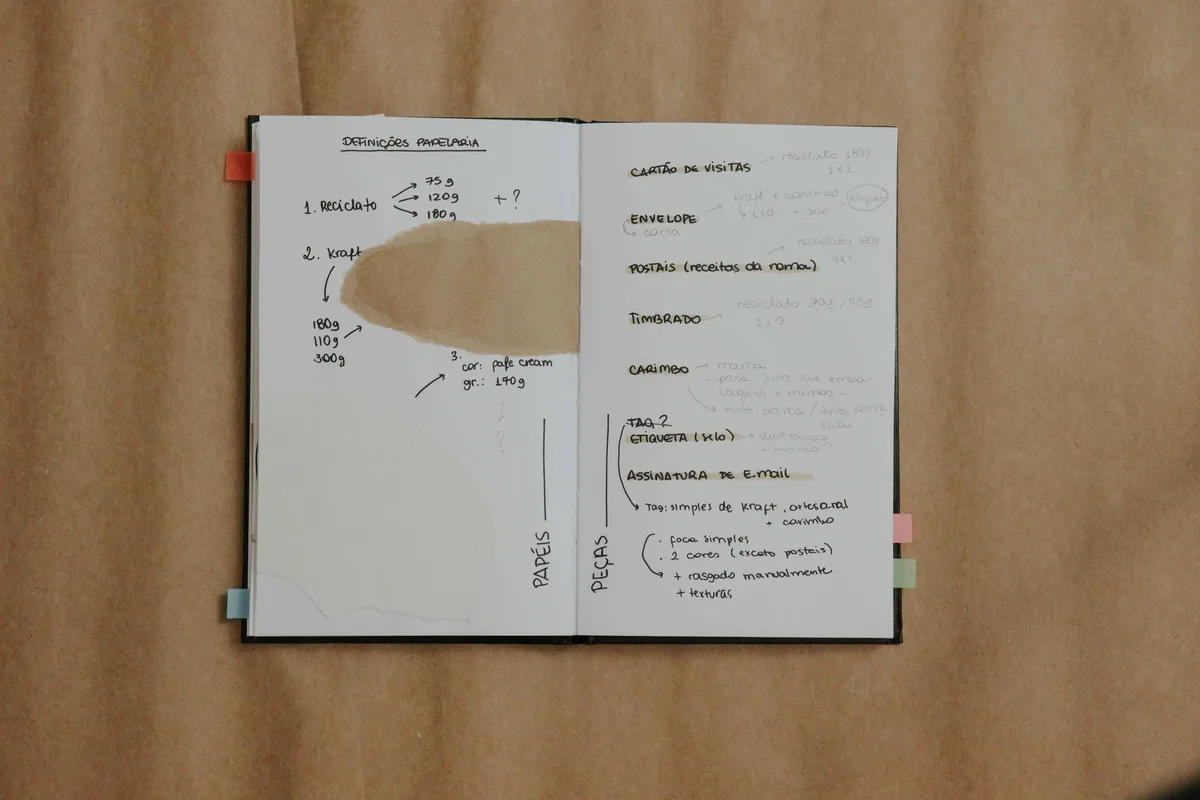 DEFINIÇÕES PAPELARIA
1. Reciclato
75g
120g
180g
+ ?
2. Kraft
180g
110g
300g
3.
cor: pape cream
gr.: 170g
PAPÉIS
CARTÃO DE VISITAS
reciclato 180g
1x1
ENVELOPE
kraft + carimbo
etiqueta
1x0
+ selo
carta
POSTAIS (receitas da noma)
reciclato 180g
4x1
TIMBRADO
reciclato 90g / 75g
1x0
CARIMBO
marca
para uso em emba
lagens
tinta branca / tinta
TAG?
ETIQUETA (selo)
ilustração
ASSINATURA DE E.mail
Tag: simples de kraft, artesanal
+ carimbo
. faca simples
. 2 cores (exceto postais)
+ rasgado manualmente
+ texturas
PEÇAS